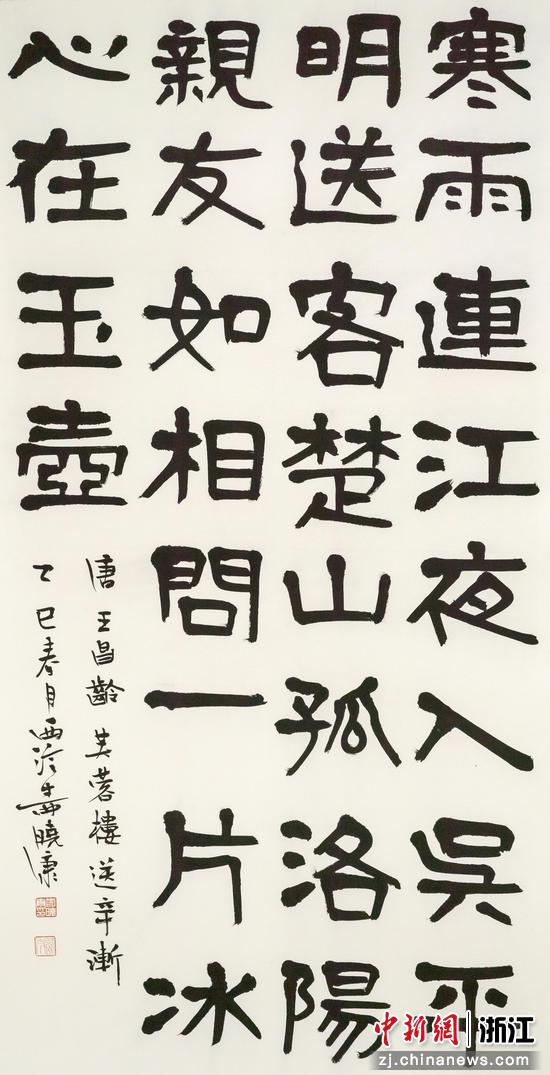 寒雨連江夜入吳平
明送客楚山孤洛陽
親友如相問一片冰
心在玉壺
唐王昌齡芙蓉樓送辛漸
乙巳春月西泠曉康
中新網 浙江
zj.chinanews.com